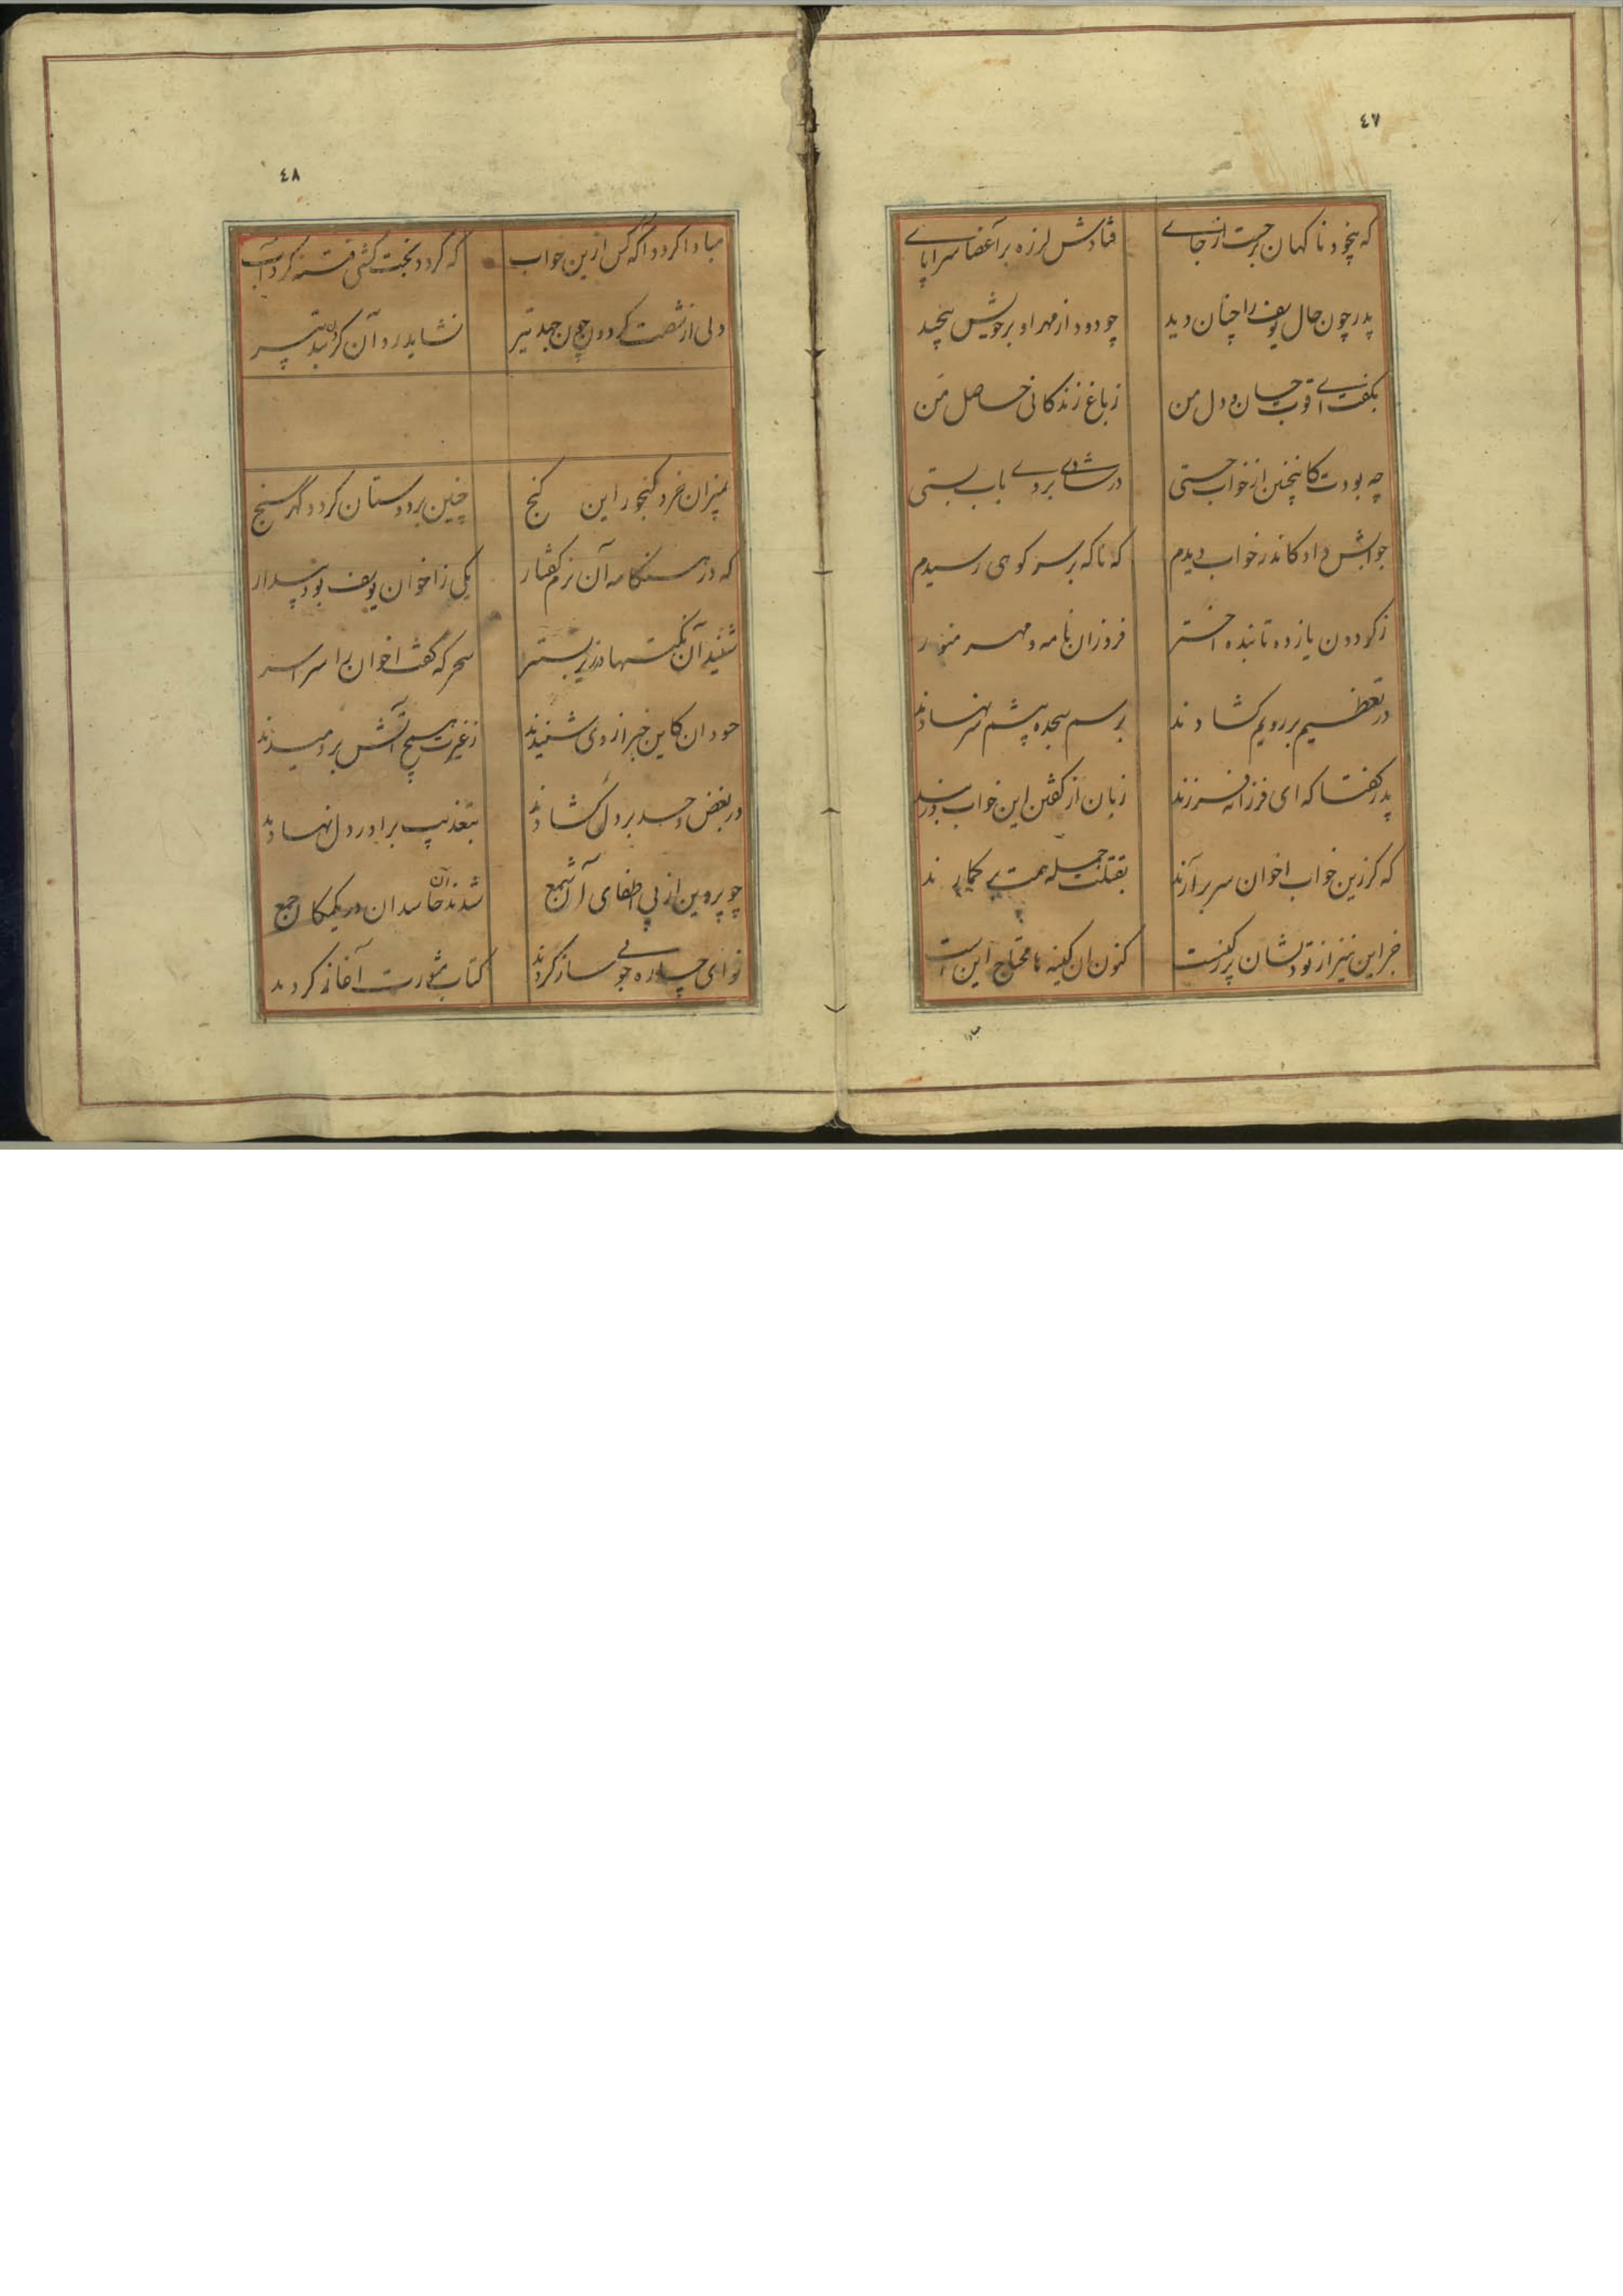 ٤٧
که بیخود ناگهان برجست از جای فتادش لرزه بر اعضا سراپای
پدر چون حال یوسف را چنان دید چو دود از مهر او بر خویش پیچید
بگفت ای قوت جان و دل من ز باغ زندگانی حاصل من
چه بودت کاینچنین از خواب جستی در شادی بروی باب بستی
جوابش داد کاندر خواب دیدم که ناگه بر سر کوهی رسیدم
ز کردون یازده تابنده اختر فروزان با مه و مهر منور
در تعظیم بر رویم کشادند برسم سجده پیشم سر نهادند
پدر گفتا که ای فرزانه فرزند زبان از گفتن این خواب در بند
که گر زین خواب اخوان سر برآرند بقتلت جمله همت بر کمارند
جز این نیز از تو دلشان پر ز کینست کنون آن کینه ها محتاج اینست
مبادا
٤٨
مبادا گردد آگه کس ازین خواب که گردد بخت کشتی فتنه گرداب
ولی از شصت گردون چون جهد تیر نشاید رد آن کردن بتدبیر
بمیزان خرد گنجور این گنج چنین بر دوستان گردد گهر سنج
که در هنگامه آن نرم گفتار یکی ز اخوان یوسف بود بیدار
شنید آن نکتها در زیر بستر سحرگه گفت اخوان را سراسر
حسودان کاین خبر از وی شنیدند ز غیرت همچو آتش بر دمیدند
در بغض و حسد بر دل کشادند بتعذیب برادر دل نهادند
چو پروین از پی اطفای آن شمع شدند آن حاسدان در یکمکان جمع
نوای چاره جویی ساز کردند کتاب مشورت آغاز کردند